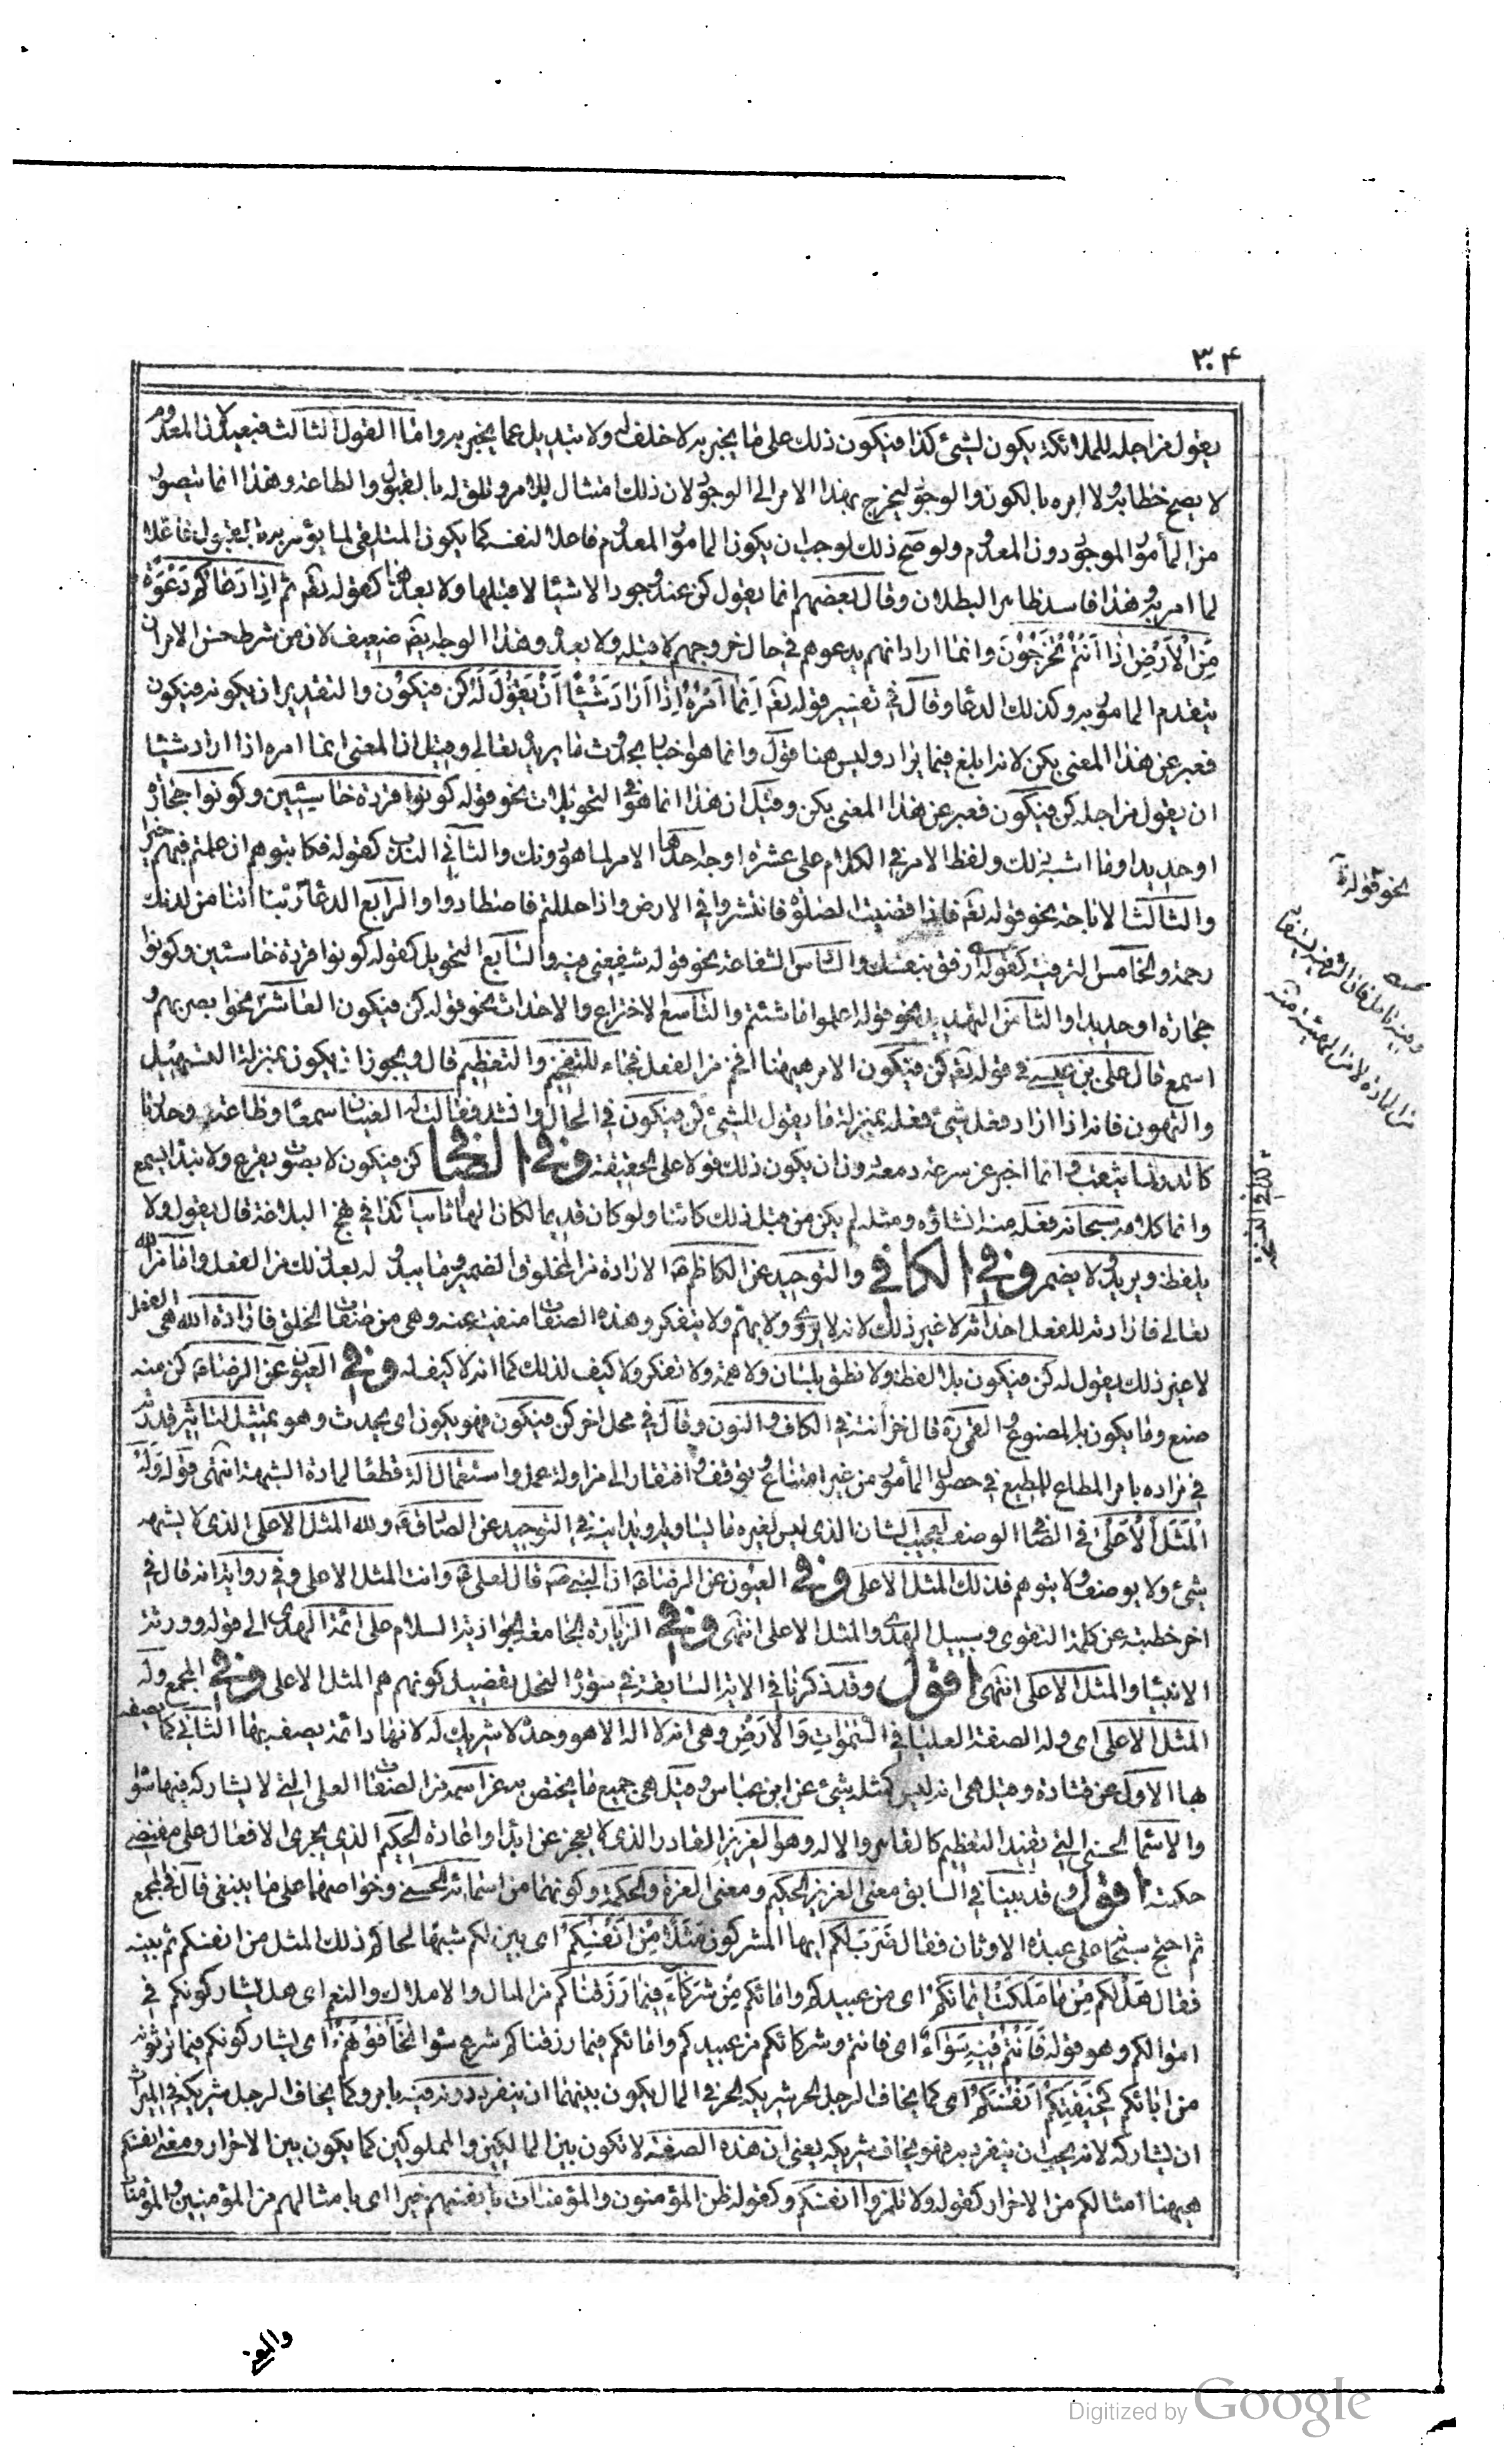 ٣٠۴
يقول من اجله للملائكة يكون لشیٔ كذا فيكون ذلك على ما يخبر به لا خلف له ولا تبديل عما يخبر به واما القول الثالث فبعيد لان المعدوم
لا يصح خطابه ولا امره بالكون والوجود ليخرج بهذا الامر الى الوجود لان ذلك امتثال للامر وتلق له بالقبول والطاعة وهذا انما يتصور
من المأمور الموجود دون المعدوم ولو صح ذلك لوجب ان يكون المامور المعدوم فاعلا لنفسه كما يكون المتلقي لما يؤمر به بالقبول فاعلا
لما امر به وهذا فاسد ظاهر البطلان وقال بعضهم انما يقول كن عند وجود الاشيا لا قبلها ولا بعدها كقوله تعه ثم اِذا دَعاكُم دَعْوَةً
مِنَ الْاَرْضِ اذا اَنتُم تُخْرَجُونَ وانما اراد انهم يدعوهم في حال خروجهم لا قبله ولا بعده وهذا الوجه ايضا ضعيف لان من شرط حسن الامر ان
يتقدم المامور به وكذلك الدعا وقال في تفسير قوله تعه اِنما اَمْرُهُ اِذا اَرادَ شَيْئًا اَنْ يَقُولَ لَهُ كن فيكوُن والتقدير ان يكونه فيكون
فعبر عن هذا المعنى بكن لانه ابلغ فيما يراد وليس هنا قول وانما هو اخبار بحدوث ما يريده تعالى وقيل ان المعنى انما امره اذا اراد شيئا
ان يقول من اجله كن فيكون فعبر عن هذا المعنى بكن وقيل ان هذا انما هو في التحويلات نحو قوله كونوا قردة خاسئين وكونوا حجارة
او حديدا وما اشبه ذلك ولفظ الامر في الكلام على عشرة اوجه احدها الامر لما هو دونك والثاني الندب كقوله فكاتبوهم ان علمتم فيهم خيرا
والثالث الاباحة نحو قوله تعه فاذا قضيت الصلوة فانتشروا في الارض واذا حللتم فاصطادوا والرابع الدعا ربنا اتنا من لدنك
رحمة والخامس الترفيه كقوله ارفق بنفسك والسادس الشفاعة نحو قوله شفعني فيه والسابع التحويل كقوله كونوا قردة خاسئين وكونوا
حجارة او حديدا والثامن التهديد نحو قوله اعملوا ما شئتم والتاسع الاختراع والاحداث نحو قوله كن فيكون العاشر نحو ابصر بهم و
اسمع قال علي بن عيسى في قوله تعه كن فيكون الامر هيهنا افخم من الفعل فجاء للتفخيم والتعظيم قال ويجوز ان يكون بمنزلة التسهيل
والتهوين فانه اذا اراد فعل شیٔ فعله بمنزلة ما يقول للشیٔ كن فيكون في الحال وانشد فقالت له العينان سمعا وطاعة وحدرتا
كالدر لما يثقب وانما اخبر عن سرعة دمعه دون ان يكون ذلك قولا على الحقيقة وفي الصافي كن فيكون لا بصوت يقرع ولا بنداء يسمع
وانما كلامه سبحانه فعل منه انشاؤه ومثله لم يكن من قبل ذلك كائنا ولو كان قديما لكان الها ثانيا كذا في نهج البلاغة قال يقول ولا
يلفظ ويريد ولا يضمر وفي الكافي والتوحيد عن الكاظم ع الارادة من المخلوق الضمير وما يبدو له بعد ذلك من الفعل واما من الله
تعالى فارادته للفعل احداثه لا غير ذلك لانه لا يروي ولا يهم ولا يتفكر وهذه الصفات منفية عنه وهي من صفات الخلق فارادة الله هي الفعل
لا غير ذلك يقول له كن فيكون بلا لفظ ولا نطق بلسان ولا همة ولا تفكر ولا كيف لذلك كما انه لا كيف له وفي العيون عن الرضا ع كن منه
صنع وما يكون به المصنوع القمى ره قال خزائنه في الكاف والنون وقال في محل اخر كن فيكون فهو يكون اى يحدث وهو تمثيل لتاثير قدرته
في مراده بامر المطاع للمطيع في حصول المأمور من غير امتناع وتوقف وافتقار الى مزاولة عمل واستعمال آلة قطعا لمادة الشبهة انتهى قوله وَلَهُ
الْمَثَلُ الْاَعْلى في الصافي الوصف العجيب الشان الذي ليس لغيره ما يساويه او يدانيه في التوحيد عن الصادق ع ولله المثل الاعلى الذي لا يشبهه
شیٔ ولا يوصف ولا يتوهم فذلك المثل الاعلى وفي العيون عن الرضا ع ان النبي ص قال لعلي ع وانت المثل الاعلى وفي رواية انه قال في
اخر خطبته عن كلمة التقوى وسبيل الهدى والمثل الاعلى انتهى وفي الزيارة الجامعة الجوادية السلام على ائمة الهدى الى قوله وورثة
الانبيا والمثل الاعلى انتهى اقول وقد ذكرنا في الاية السابقة في سورة النحل تفضيل كونهم هم المثل الاعلى وفي المجمع وله
المثل الاعلى اى وله الصفة العليا في السَّمٰوٰاتِ وَالْاَرْضِ وهي انه لا اله الا هو وحده لا شريك له لانها دائمة يصفه بها الثاني كما يصفه
بها الاول عن قتادة وقيل هي انه ليس كمثله شیٔ عن ابن عباس وقيل هي جميع ما يختص به عز اسمه من الصفات العلى التي لا يشاركه فيها سواه
والاسما الحسنى التي تفيد التعظيم كالقاهر والاله وهو العزيز القادر الذي لا يعجز عن ابداء واعادة الحكيم الذي يجرى الافعال على مقتضى
حكمته اقول وقد بينا في السابق معنى العزيز الحكيم ومعنى العزة والحكمة وكونهما من اسمائه الحسنى وخواصهما على ما ينبغى قال في المجمع
ثم احتج سبحانه على عبدة الاوثان فقال ضَرَبَ لَكُم ايها المشركون مَثَلًا مِنْ اَنْفُسِكُمْ اى بين لكم شبها لحالكم ذلك المثل من انفسكم ثم بينه
فقال هَلْ لَكُم مِنْ ما مَلَكَتْ اَيْمانُكُمْ اى من عبيدكم وامائكم مِنْ شُرَكاءَ فِيما رَزَقْناكُم من المال والاملاك والنعم اى هل يشاركونكم في
اموالكم وهو قوله فَاَنْتُم فيهِ سَواءٌ اى فانتم وشركائكم من عبيدكم وامائكم فيما رزقناكم شرع سوا تَخافُونَهُمْ اى يشاركونكم فيما ترثونه
من ابائكم كَخِيفَتِكُم اَنْفُسَكُمْ اى كما يخاف الرجل الحر شريكه الحر في المال يكون بينهما ان ينفرد دونه فيه بامر وكما يخاف الرجل شريكه في الميراث
ان يشاركه لانه يحب ان ينفرد به فهو يخاف شريكه يعنى ان هذه الصفة لا تكون بين المالكين والمملوكين كما يكون بين الاحرار ومعنى انفسكم
هيهنا امثالكم من الاحرار كقوله ولا تلمزوا انفسكم وكقوله ظن المؤمنون والمؤمنات بانفسهم خيرا اى بامثالهم من المؤمنين والمؤمنات
نحو قوله
Digitized by Google